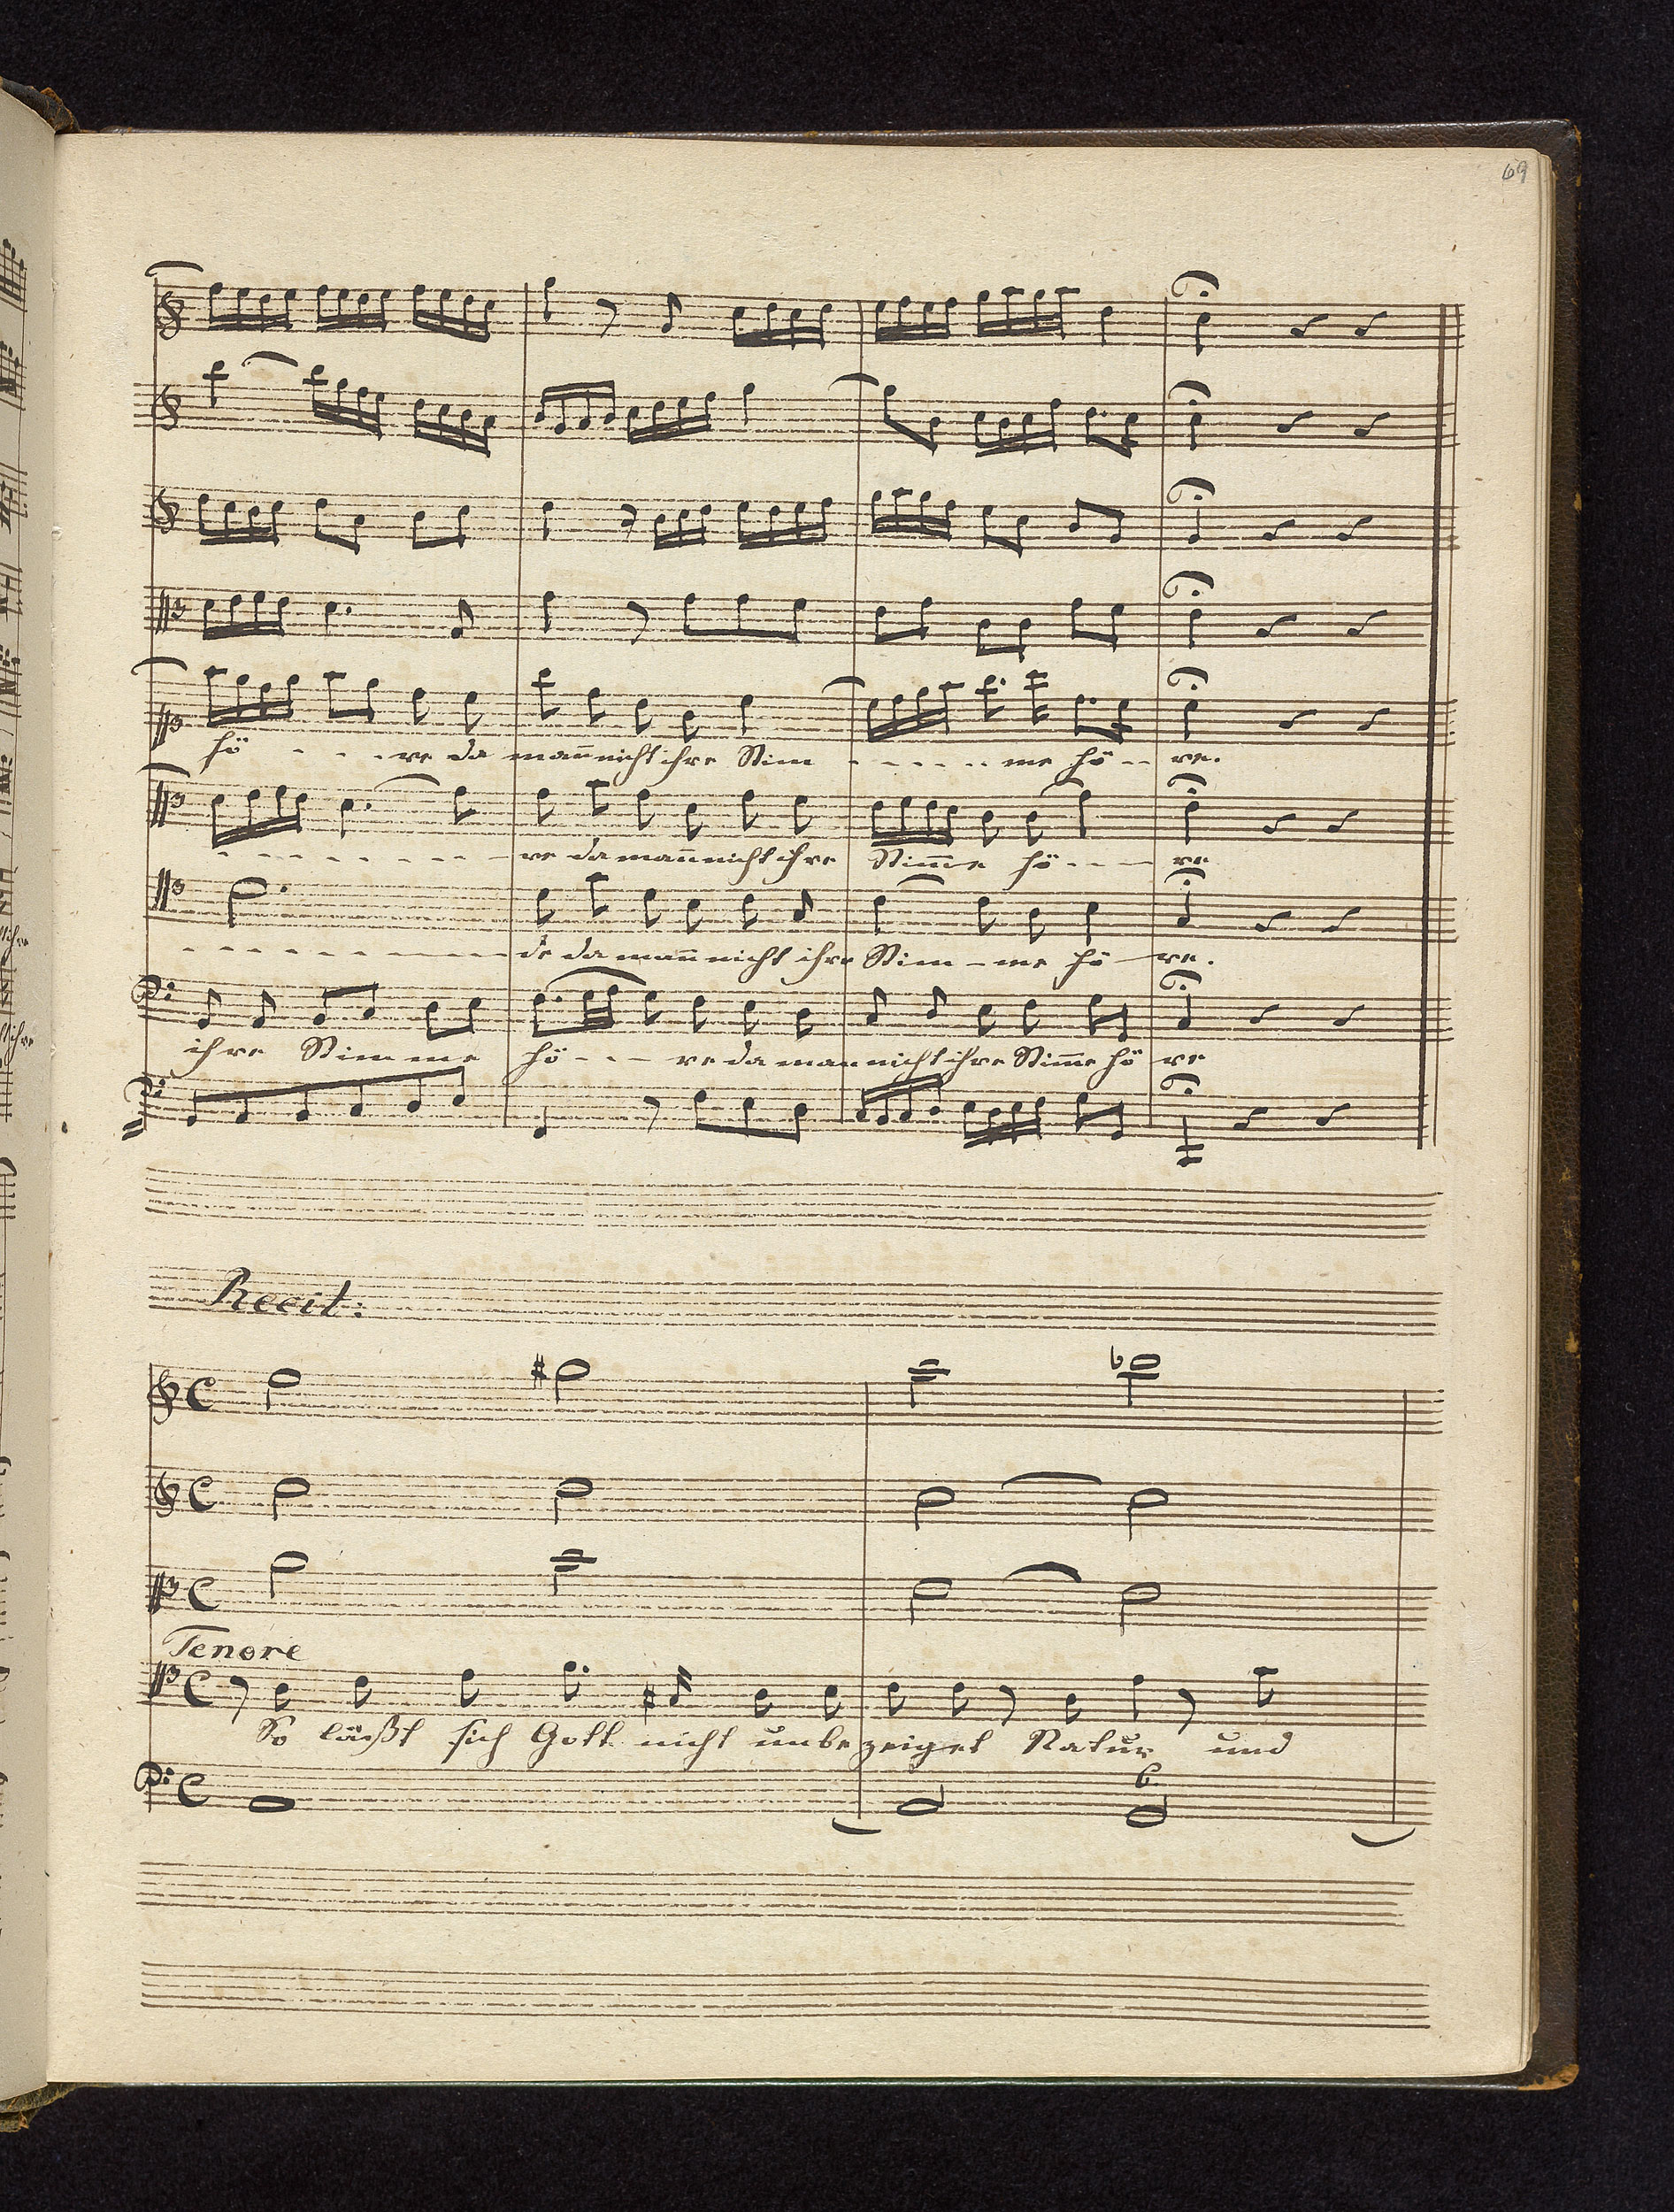 69
hö - - - re da mañ nicht ihre Stim - - - - - me hö - - re.
- - - - - - - - - re da mañ nicht ihre Stim̄e hö - - - re
- - - - - - - - - de da mañ nicht ihre Stim - me hö - re.
ihre Stimme hö - - - re da man nicht ihre Stim̄e hö re
Recit:
Tenore
So läßt sich Gott nicht unbezeiget Natur und
6